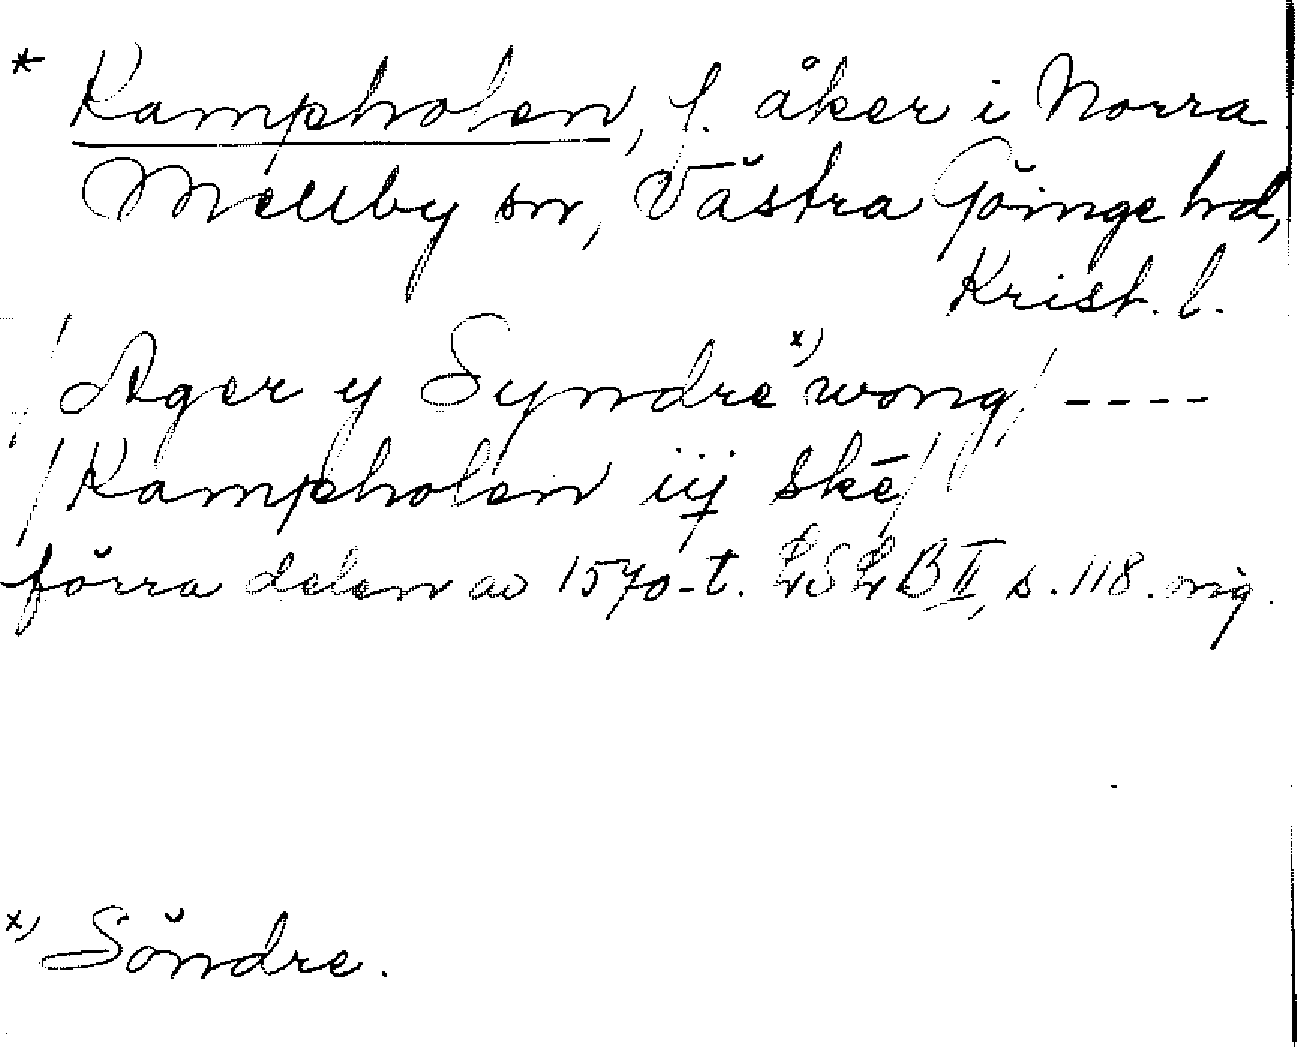 * Kampholen, f. åker i Norra
Mellby sn, Västra Göinge hd,
Krist. l.
/Ager y Syndre x) wong/ ----
/Kampholen iij skē/
förra delen av 1570-t. LSLB II, s. 118. orig.
x) Söndre.